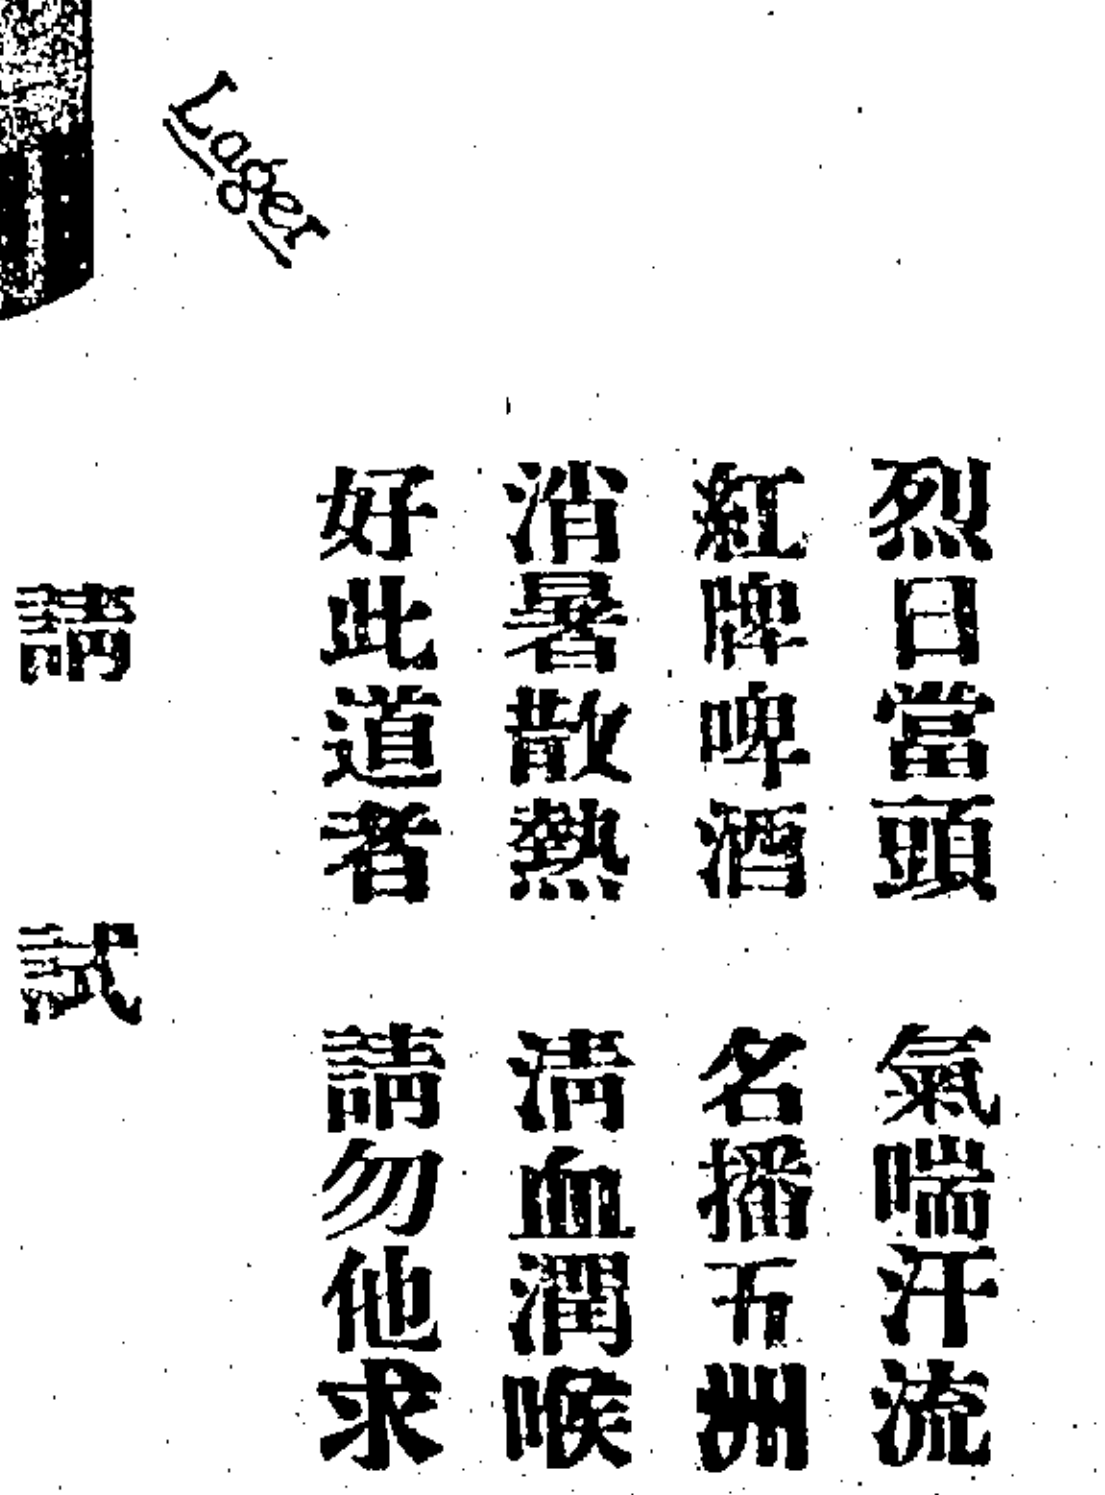 Lager
烈日當頭 氣喘汗流
紅牌啤酒 名播五洲
消暑散熱 清血潤喉
好此道者 請勿他求
請試